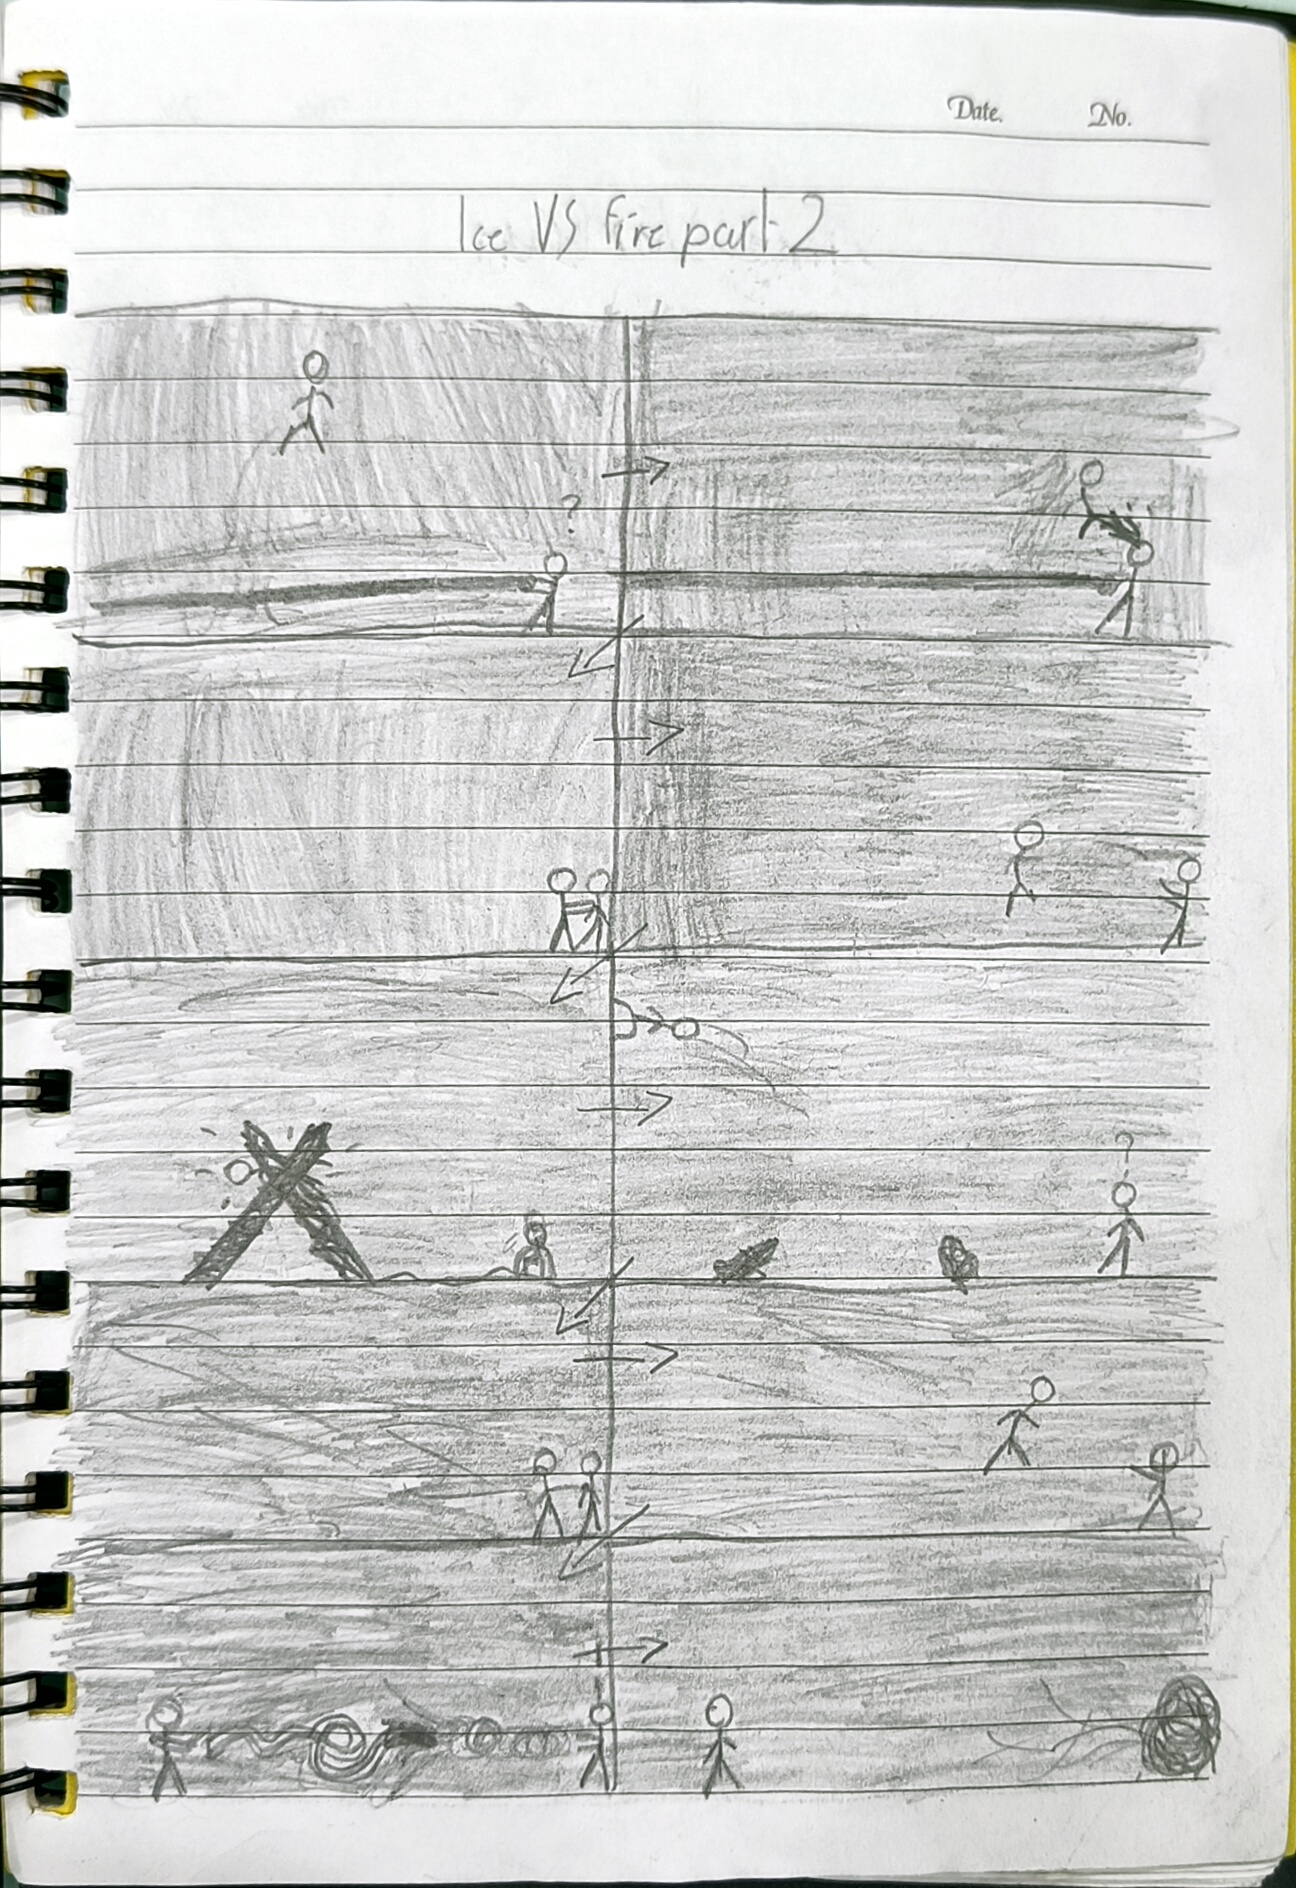 Date. No.
Ice VS fire part 2
?
?